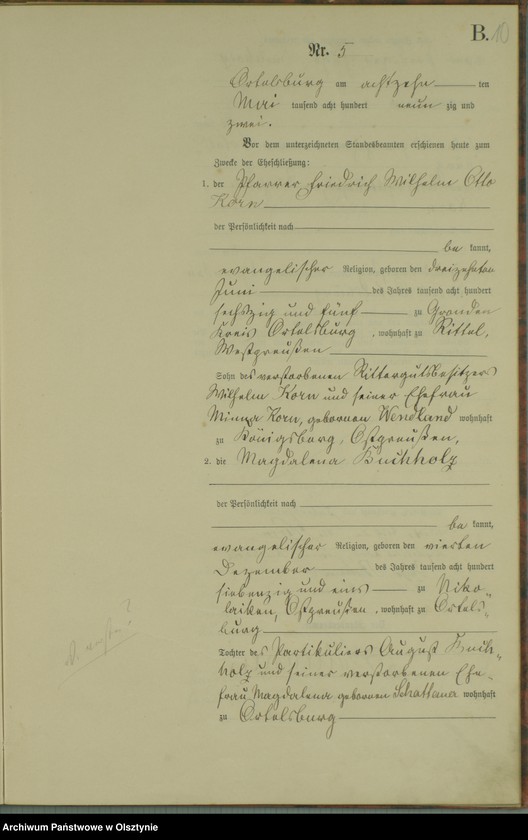 B. 10
Nr. 5
Ortelsburg am achtzehn ten
Mai tausend acht hundert neun zig und
zwei.
Vor dem unterzeichneten Standesbeamten erschienen heute zum
Zwecke der Eheschließung:
1. der Pfarrer Friedrich Wilhelm Otto
Korn
der Persönlichkeit nach
be kannt,
evangelischer Religion, geboren den dreizehnten
Juni des Jahres tausend acht hundert
sechszig und fünf zu
Kreis Ortelsburg, wohnhaft zu Rittel,
Westpreußen
Sohn des verstorbenen Rittergutsbesitzers
Wilhelm Korn und seiner Ehefrau
Minna Korn, geborenen Wendland wohnhaft
zu Königsberg, Ostpreußen,
2. die Magdalena Buchholz
der Persönlichkeit nach
be kannt,
evangelischer Religion, geboren den vierten
Dezember des Jahres tausend acht hundert
siebenzig und eins zu Niko-
laiken, Ostpreußen, wohnhaft zu Ortels-
burg
Tochter des Partikuliers August Buch-
holz und seiner verstorbenen Ehe-
frau Magdalena geborenen wohnhaft
zu Ortelsburg
Archiwum Państwowe w Olsztynie